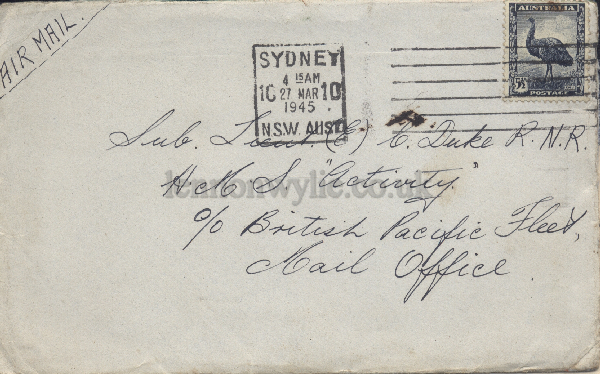 AIR MAIL.
AUSTRALIA
5½D
POSTAGE
SYDNEY
4 15AM
10 27 MAR 10
1945
N.S.W. AUST
Sub. Lieut (E) C. Duke R.N.R.
H M S. "Activity"
c/o British Pacific Fleet,
Mail Office.
lennonwylie.co.uk